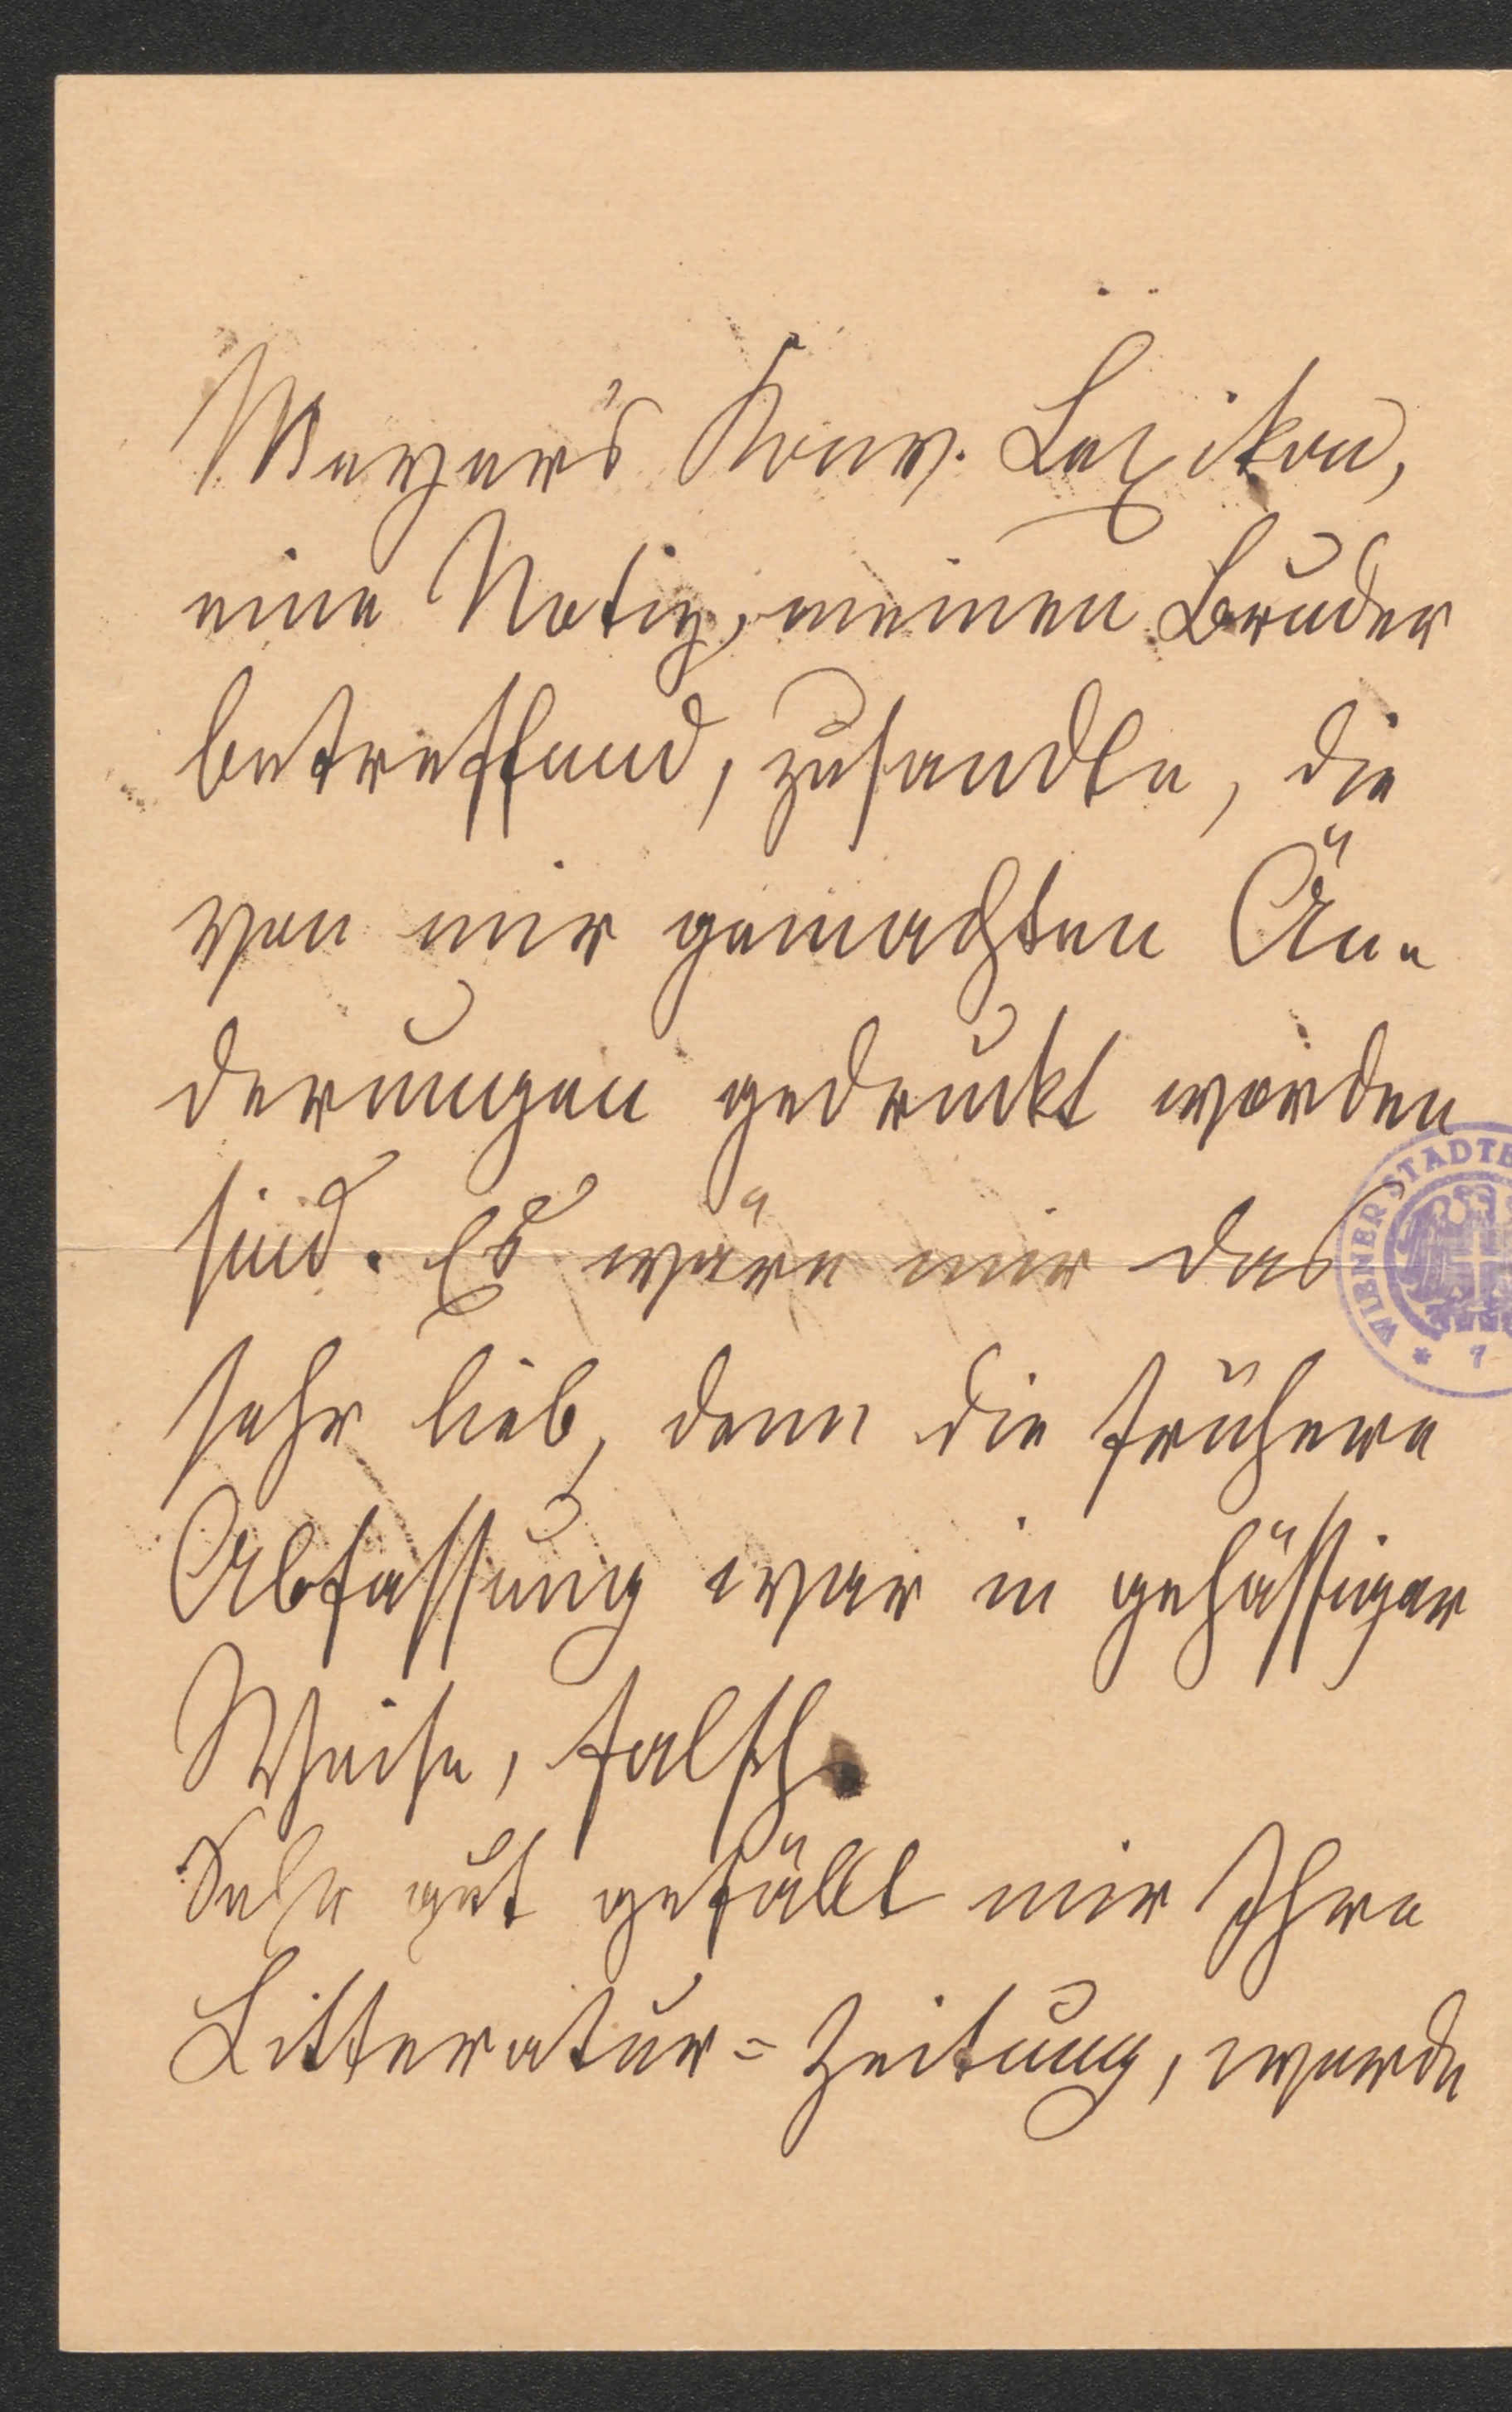 Meyer's Konv. Lexikon,
eine Notiz, meinen Bruder
betreffend, zusandte, die
von mir gemachten Än-
derungen gedruckt worden
sind. Es wäre mir das
sehr lieb, denn die frühere
Abfassung war in gehässiger
Weise, falsch.
Sehr gut gefällt mir Ihre
Litteratur=Zeitung, werde
WIENER STADTB
* 7